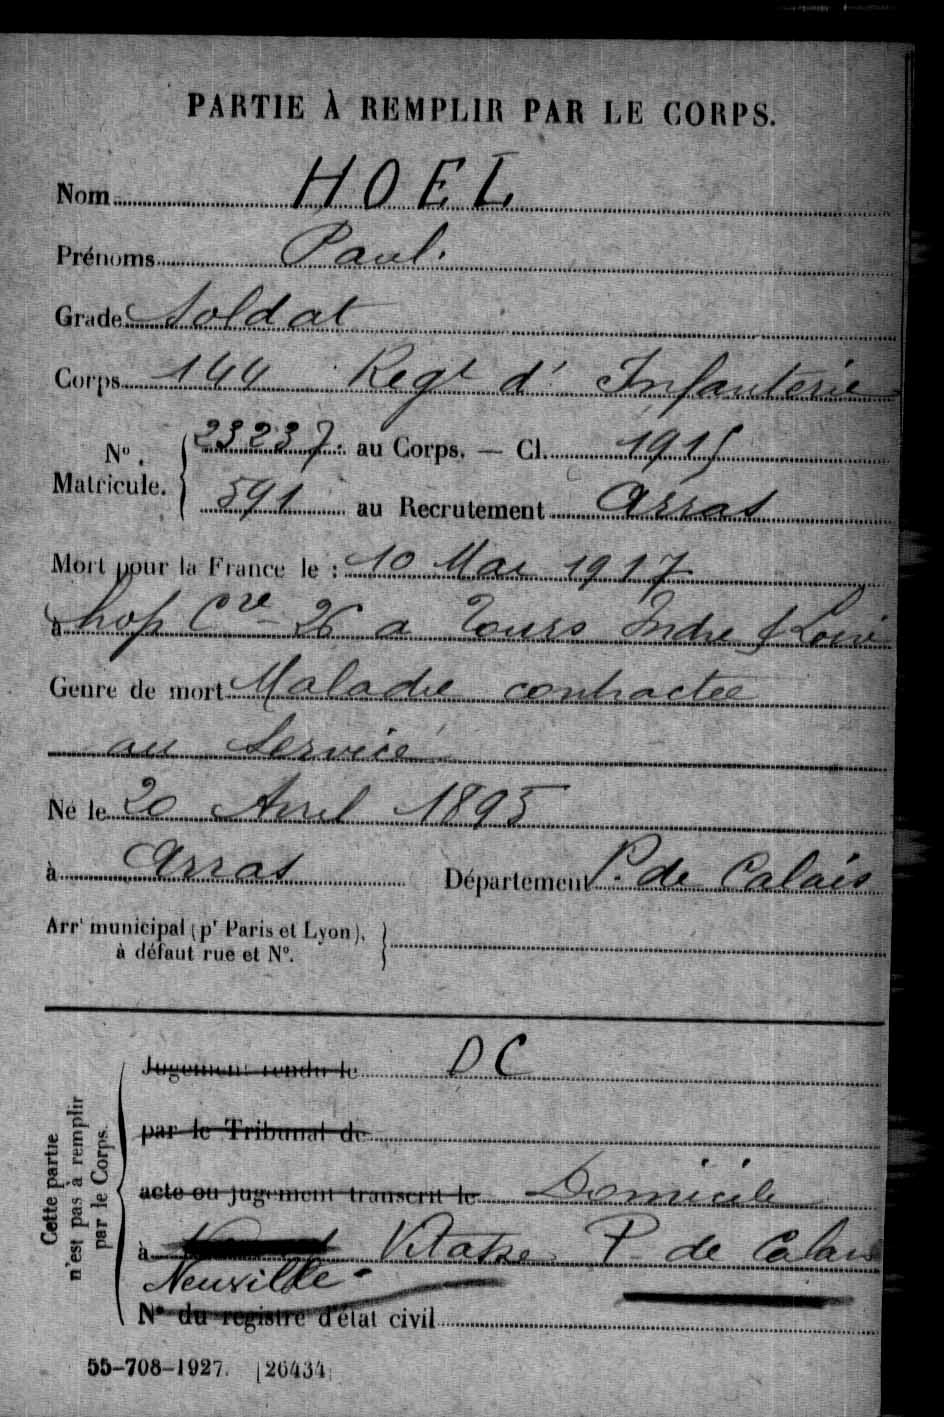 PARTIE À REMPLIR PAR LE CORPS.
Nom HOEL
Prénoms Paul.
Grade Soldat
Corps 144 Regt d' Infanterie
No. Matricule. { 23237. au Corps. — Cl. 1915
591 au Recrutement Arras
Mort pour la France le : 10 Mai 1917
à hop Cre 26 a Tours Indre & Loire
Genre de mort Maladie contractée
au Service
Né le 20 Avril 1895
à Arras Département P. de Calais
Arrt municipal (pr Paris et Lyon), à défaut rue et No. }
Cette partie n'est pas à remplir par le Corps.
Jugement rendu le DC
par le Tribunal de
acte ou jugement transcrit le Domicile
à Vitasse P de Calais
Neuville-
No du registre d'état civil
55-708-1927. [26434]